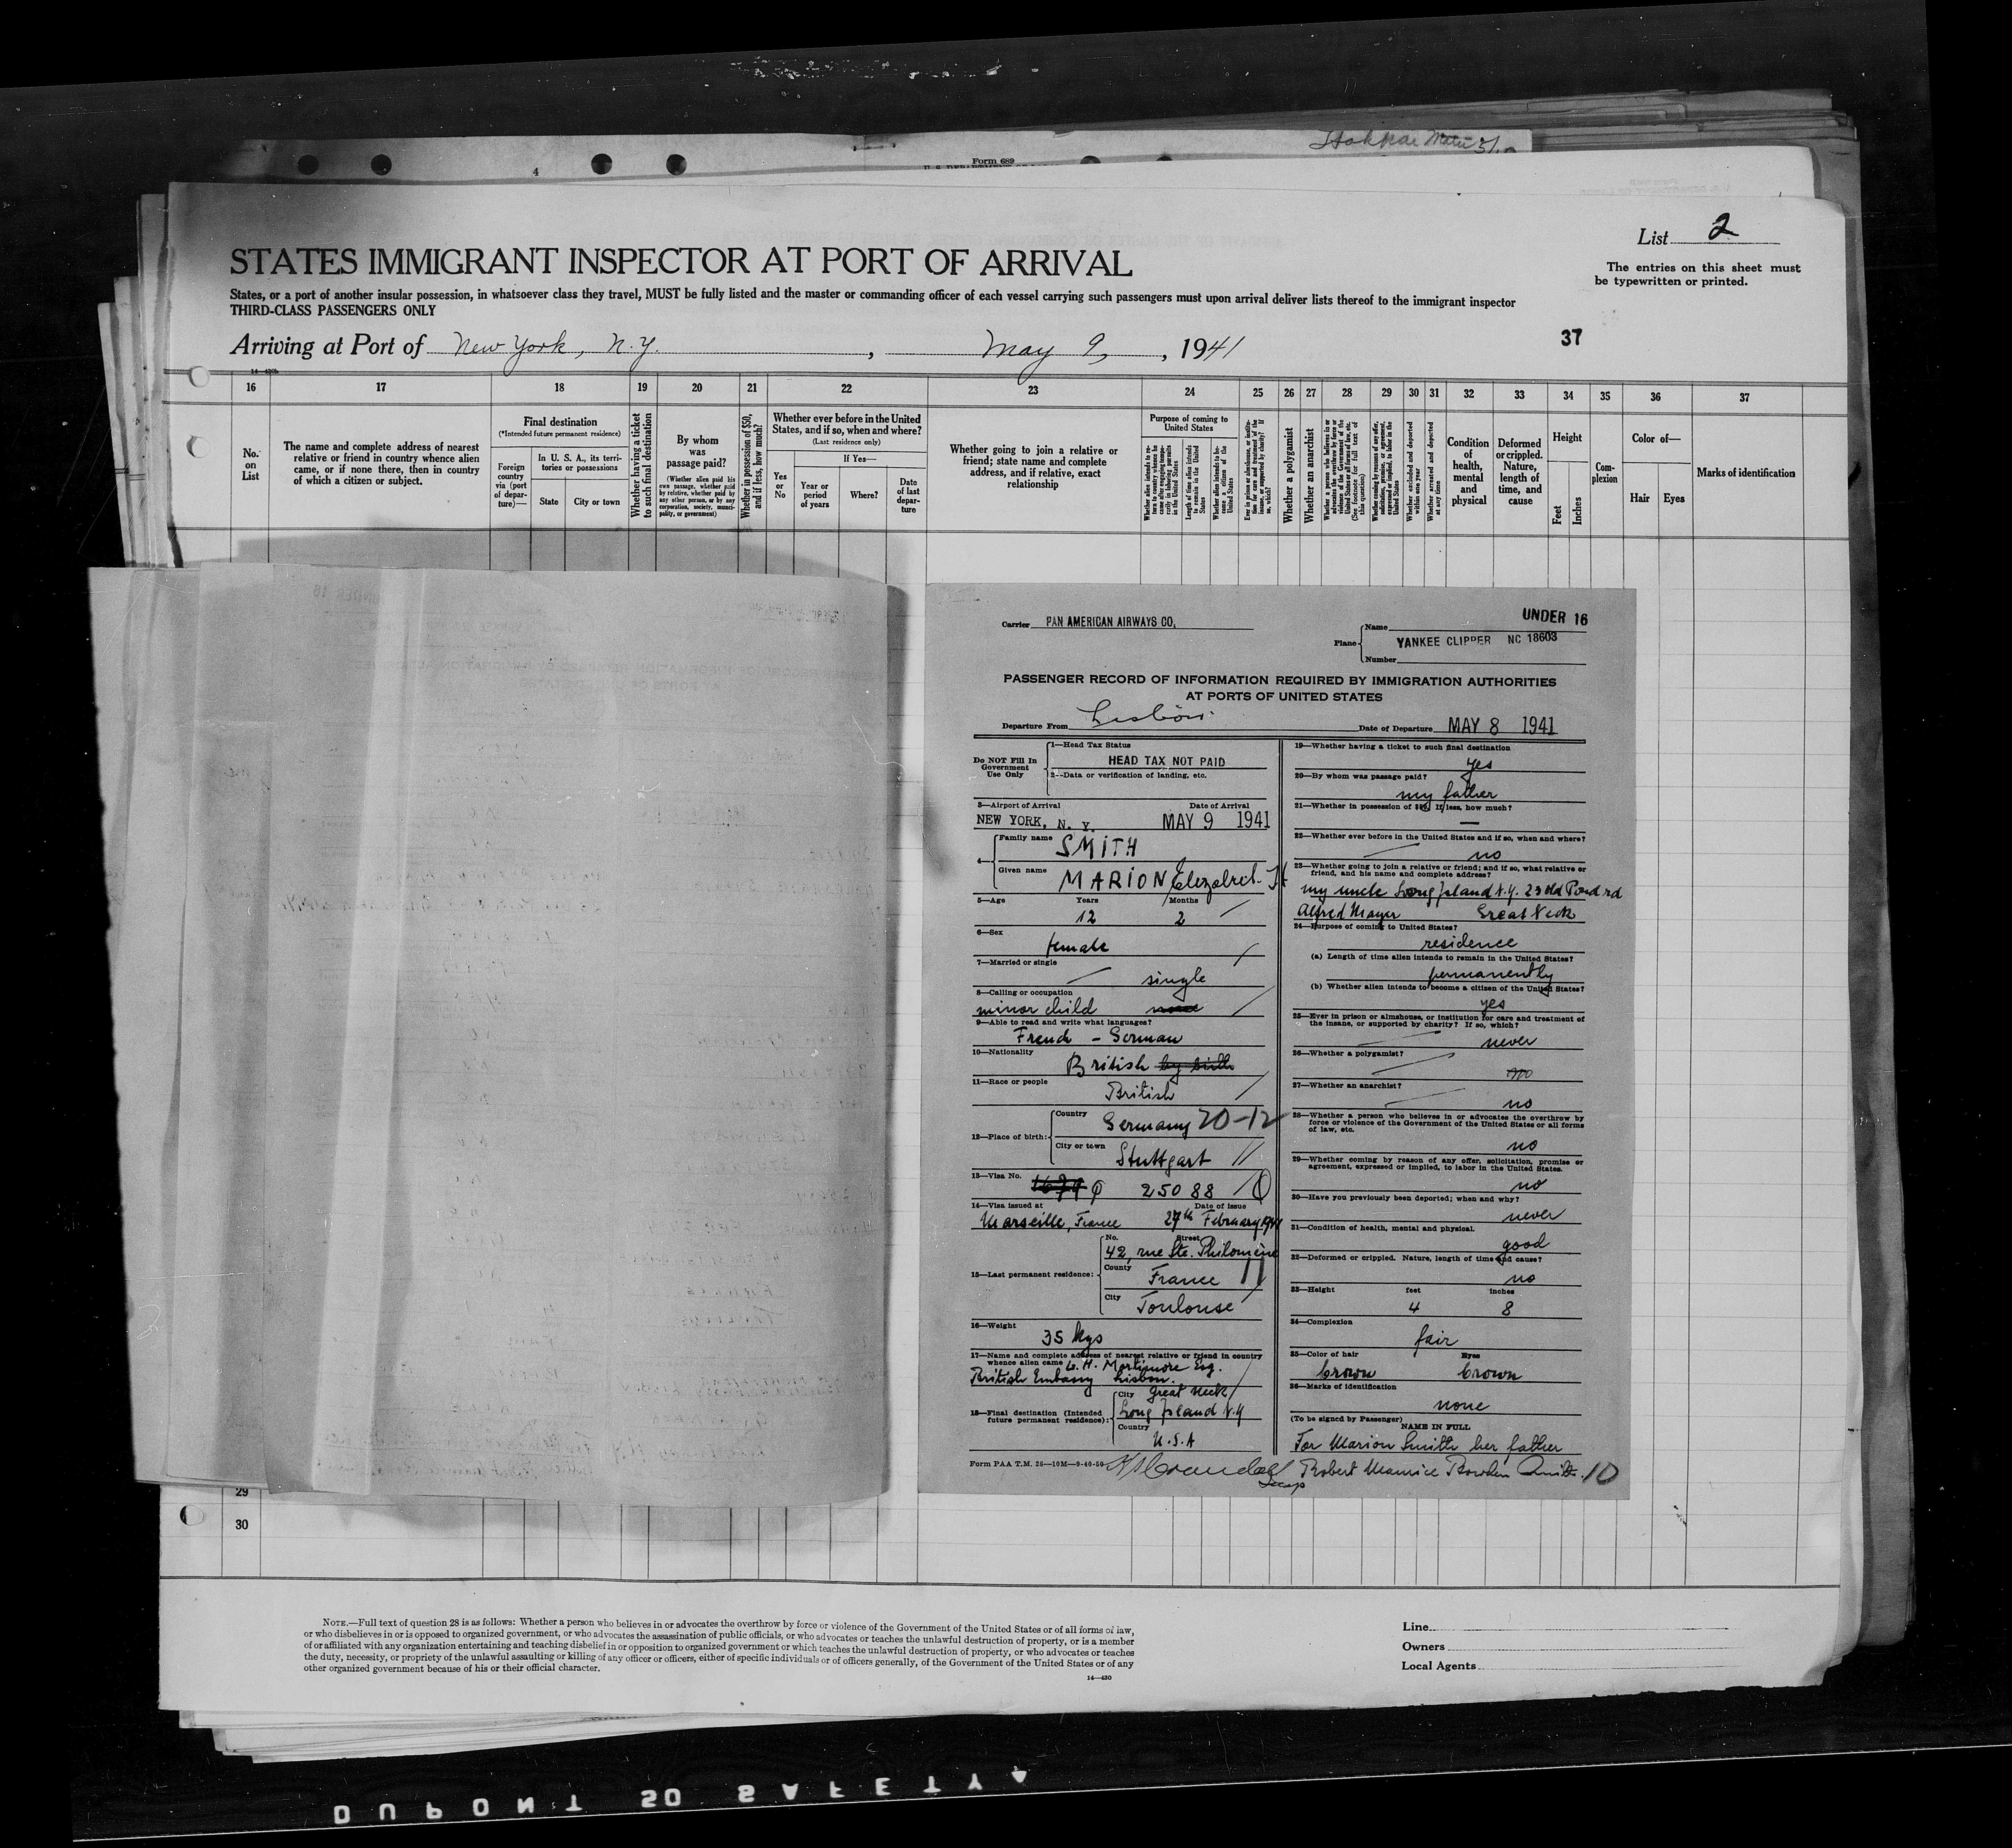 Form 689
4
List 2
STATES IMMIGRANT INSPECTOR AT PORT OF ARRIVAL
The entries on this sheet must
be typewritten or printed.
States, or a port of another insular possession, in whatsoever class they travel, MUST be fully listed and the master or commanding officer of each vessel carrying such passengers must upon arrival deliver lists thereof to the immigrant inspector
THIRD-CLASS PASSENGERS ONLY
37
Arriving at Port of New York, N.Y. , May 9, , 1941
16 17 18 19 20 21 22 23 24 25 26 27 28 29 30 31 32 33 34 35 36 37
No. on List
The name and complete address of nearest
relative or friend in country whence alien
came, or if none there, then in country
of which a citizen or subject.
Final destination
(*Intended future permanent residence)
Foreign country via (port of departure)—
In U. S. A., its territories or possessions
State
City or town
Whether having a ticket to such final destination
By whom was passage paid?
(Whether alien paid his own passage, whether paid by relative, whether paid by any other person, or by any corporation, society, municipality, or government)
Whether in possession of $50, and if less, how much?
Whether ever before in the United
States, and if so, when and where?
(Last residence only)
Yes or No
If Yes—
Year or period of years
Where?
Date of last departure
Whether going to join a relative or
friend; state name and complete
address, and if relative, exact
relationship
Purpose of coming to
United States
Whether a polygamist
Whether an anarchist
Condition of health, mental and physical
Deformed or crippled. Nature, length of time, and cause
Height
Feet
Inches
Complexion
Color of—
Hair
Eyes
Marks of identification
UNDER 16
Carrier PAN AMERICAN AIRWAYS CO.
Plane Name
YANKEE CLIPPER NC 18603
Number
PASSENGER RECORD OF INFORMATION REQUIRED BY IMMIGRATION AUTHORITIES
AT PORTS OF UNITED STATES
Departure From Lisbon
Date of Departure MAY 8 1941
Do NOT Fill In
Government
Use Only
1—Head Tax Status
HEAD TAX NOT PAID
2—Data or verification of landing, etc.
3—Airport of Arrival Date of Arrival
NEW YORK, N. Y. MAY 9 1941
4— Family name SMITH
Given name MARION Elizabeth
5—Age Years Months
12 2
6—Sex
female
7—Married or single
single
8—Calling or occupation
minor child none
9—Able to read and write what languages?
French - German
10—Nationality
British by birth
11—Race or people
British
12—Place of birth: Country
Germany 20-12
City or town
Stuttgart
13—Visa No.
25088
14—Visa issued at Date of issue
Marseille, France 27th February 1941
15—Last permanent residence: No. Street
42, rue Ste. Philomène
County
France
City
Toulouse
16—Weight
35 kgs
17—Name and complete address of nearest relative or friend in country
whence alien came G. H. Mortimore Esq.
British Embassy Lisbon.
18—Final destination (Intended
future permanent residence): City Great Neck
Long Island N.Y
Country
U.S.A
Form PAA T.M. 26—10M—9-40-50
19—Whether having a ticket to such final destination
yes
20—By whom was passage paid?
my father
21—Whether in possession of $50. If less, how much?
—
22—Whether ever before in the United States and if so, when and where?
no
23—Whether going to join a relative or friend; and if so, what relative or
friend, and his name and complete address?
my uncle Long Island N.Y. 23 Old Pond rd
Alfred Mayer Great Neck
24—Purpose of coming to United States?
residence
(a) Length of time alien intends to remain in the United States?
permanently
(b) Whether alien intends to become a citizen of the United States?
yes
25—Ever in prison or almshouse, or institution for care and treatment of
the insane, or supported by charity? If so, which?
never
26—Whether a polygamist?
no
27—Whether an anarchist?
no
28—Whether a person who believes in or advocates the overthrow by
force or violence of the Government of the United States or all forms
of law, etc.
no
29—Whether coming by reason of any offer, solicitation, promise or
agreement, expressed or implied, to labor in the United States.
no
30—Have you previously been deported; when and why?
never
31—Condition of health, mental and physical.
good
32—Deformed or crippled. Nature, length of time and cause?
no
33—Height feet inches
4 8
34—Complexion
fair
35—Color of hair Eyes
brown brown
36—Marks of identification
none
(To be signed by Passenger) NAME IN FULL
For Marion Smith her father
Robert Maurice Bowden Smith. 10
29
30
NOTE.—Full text of question 28 is as follows: Whether a person who believes in or advocates the overthrow by force or violence of the Government of the United States or of all forms of law,
or who disbelieves in or is opposed to organized government, or who advocates the assassination of public officials, or who advocates or teaches the unlawful destruction of property, or is a member
of or affiliated with any organization entertaining and teaching disbelief in or opposition to organized government or which teaches the unlawful destruction of property, or who advocates or teaches
the duty, necessity, or propriety of the unlawful assaulting or killing of any officer or officers, either of specific individuals or of officers generally, of the Government of the United States or of any
other organized government because of his or their official character.
14—430
Line
Owners
Local Agents
DUPONT 50 SAFETY